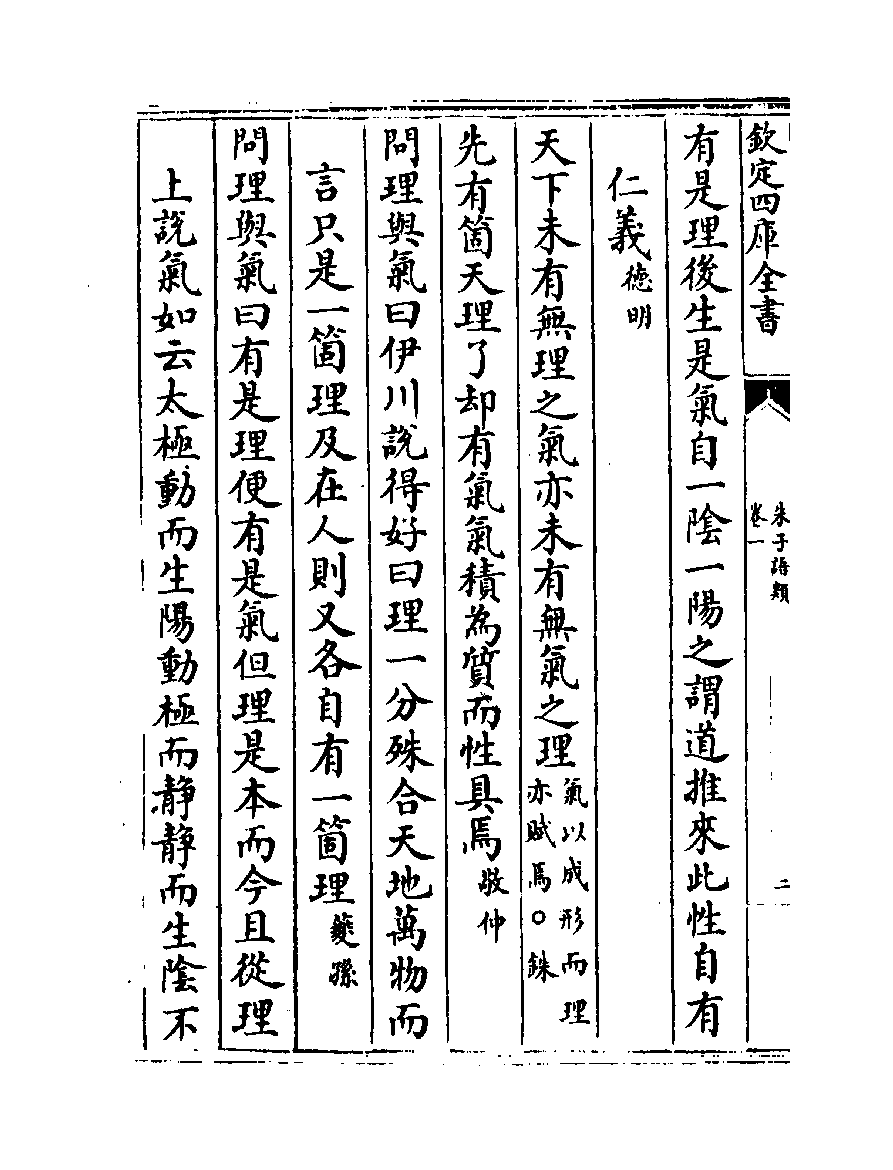 欽定四庫全書
朱子語類
卷一
二
有是理後生是氣自一陰一陽之謂道推來此性自有
仁義德明
天下未有無理之氣亦未有無氣之理氣以成形而理
亦賦焉○銖
先有箇天理了却有氣氣積為質而性具焉敬仲
問理與氣曰伊川說得好曰理一分殊合天地萬物而
言只是一箇理及在人則又各自有一箇理夔孫
問理與氣曰有是理便有是氣但理是本而今且從理
上說氣如云太極動而生陽動極而静静而生陰不